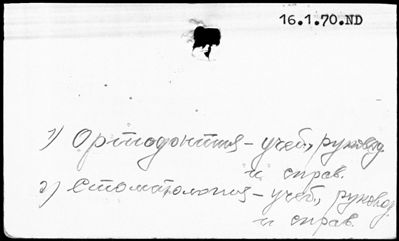 16.1.70.ND
1) Ортодонтия – учеб., руковод.
и справ.
2) Стоматология – учеб., руковод.
и справ.